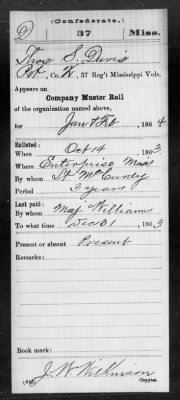 (Confederate.)
D 37 Miss.
Thos S. Davis
Pvt, Co. K, 37 Reg't Mississippi Vols.
Appears on
Company Muster Roll
of the organization named above,
for Jan & Feb, 1864
Enlisted:
When Oct 14, 1863
Where Enterprise Miss
By whom Lt McCurdy
Period 3 years
Last paid:
By whom Maj Williams
To what time Dec 31, 1863
Present or absent Present
Remarks:
Book mark:
J. W. Wilkinson
Copyist.